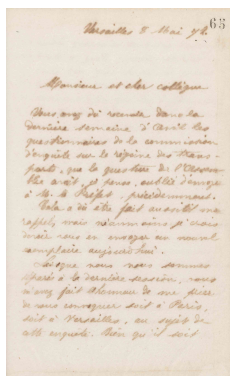 65
Versailles 8 Mai 72.
Monsieur et cher collègue
Vous avez dû recevoir dans la
dernière semaine d'avril les
questionnaires de la commission
d'enquête sur le régime des trans-
ports, que la questure de l'Assem
blée avait, je pense, oublié d'envoyer
à M. le Préfet, précédemment.
a dû être fait aussitôt un
rappel, mais néanmoins je crois
devoir vous en envoyer un nouvel
exemplaire aujourd'hui.
Lorsque nous nous sommes
séparés à la dernière session, nous
avons fait
de nous convoquer soit à Paris,
soit à Versailles, au sujet de
cette enquête. Bien qu'il soit